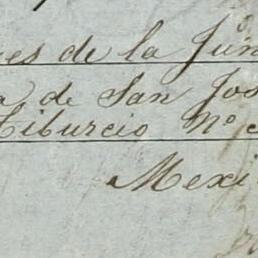 es de la Jun
a de San Jos
Tiburcio Nº
Mexi